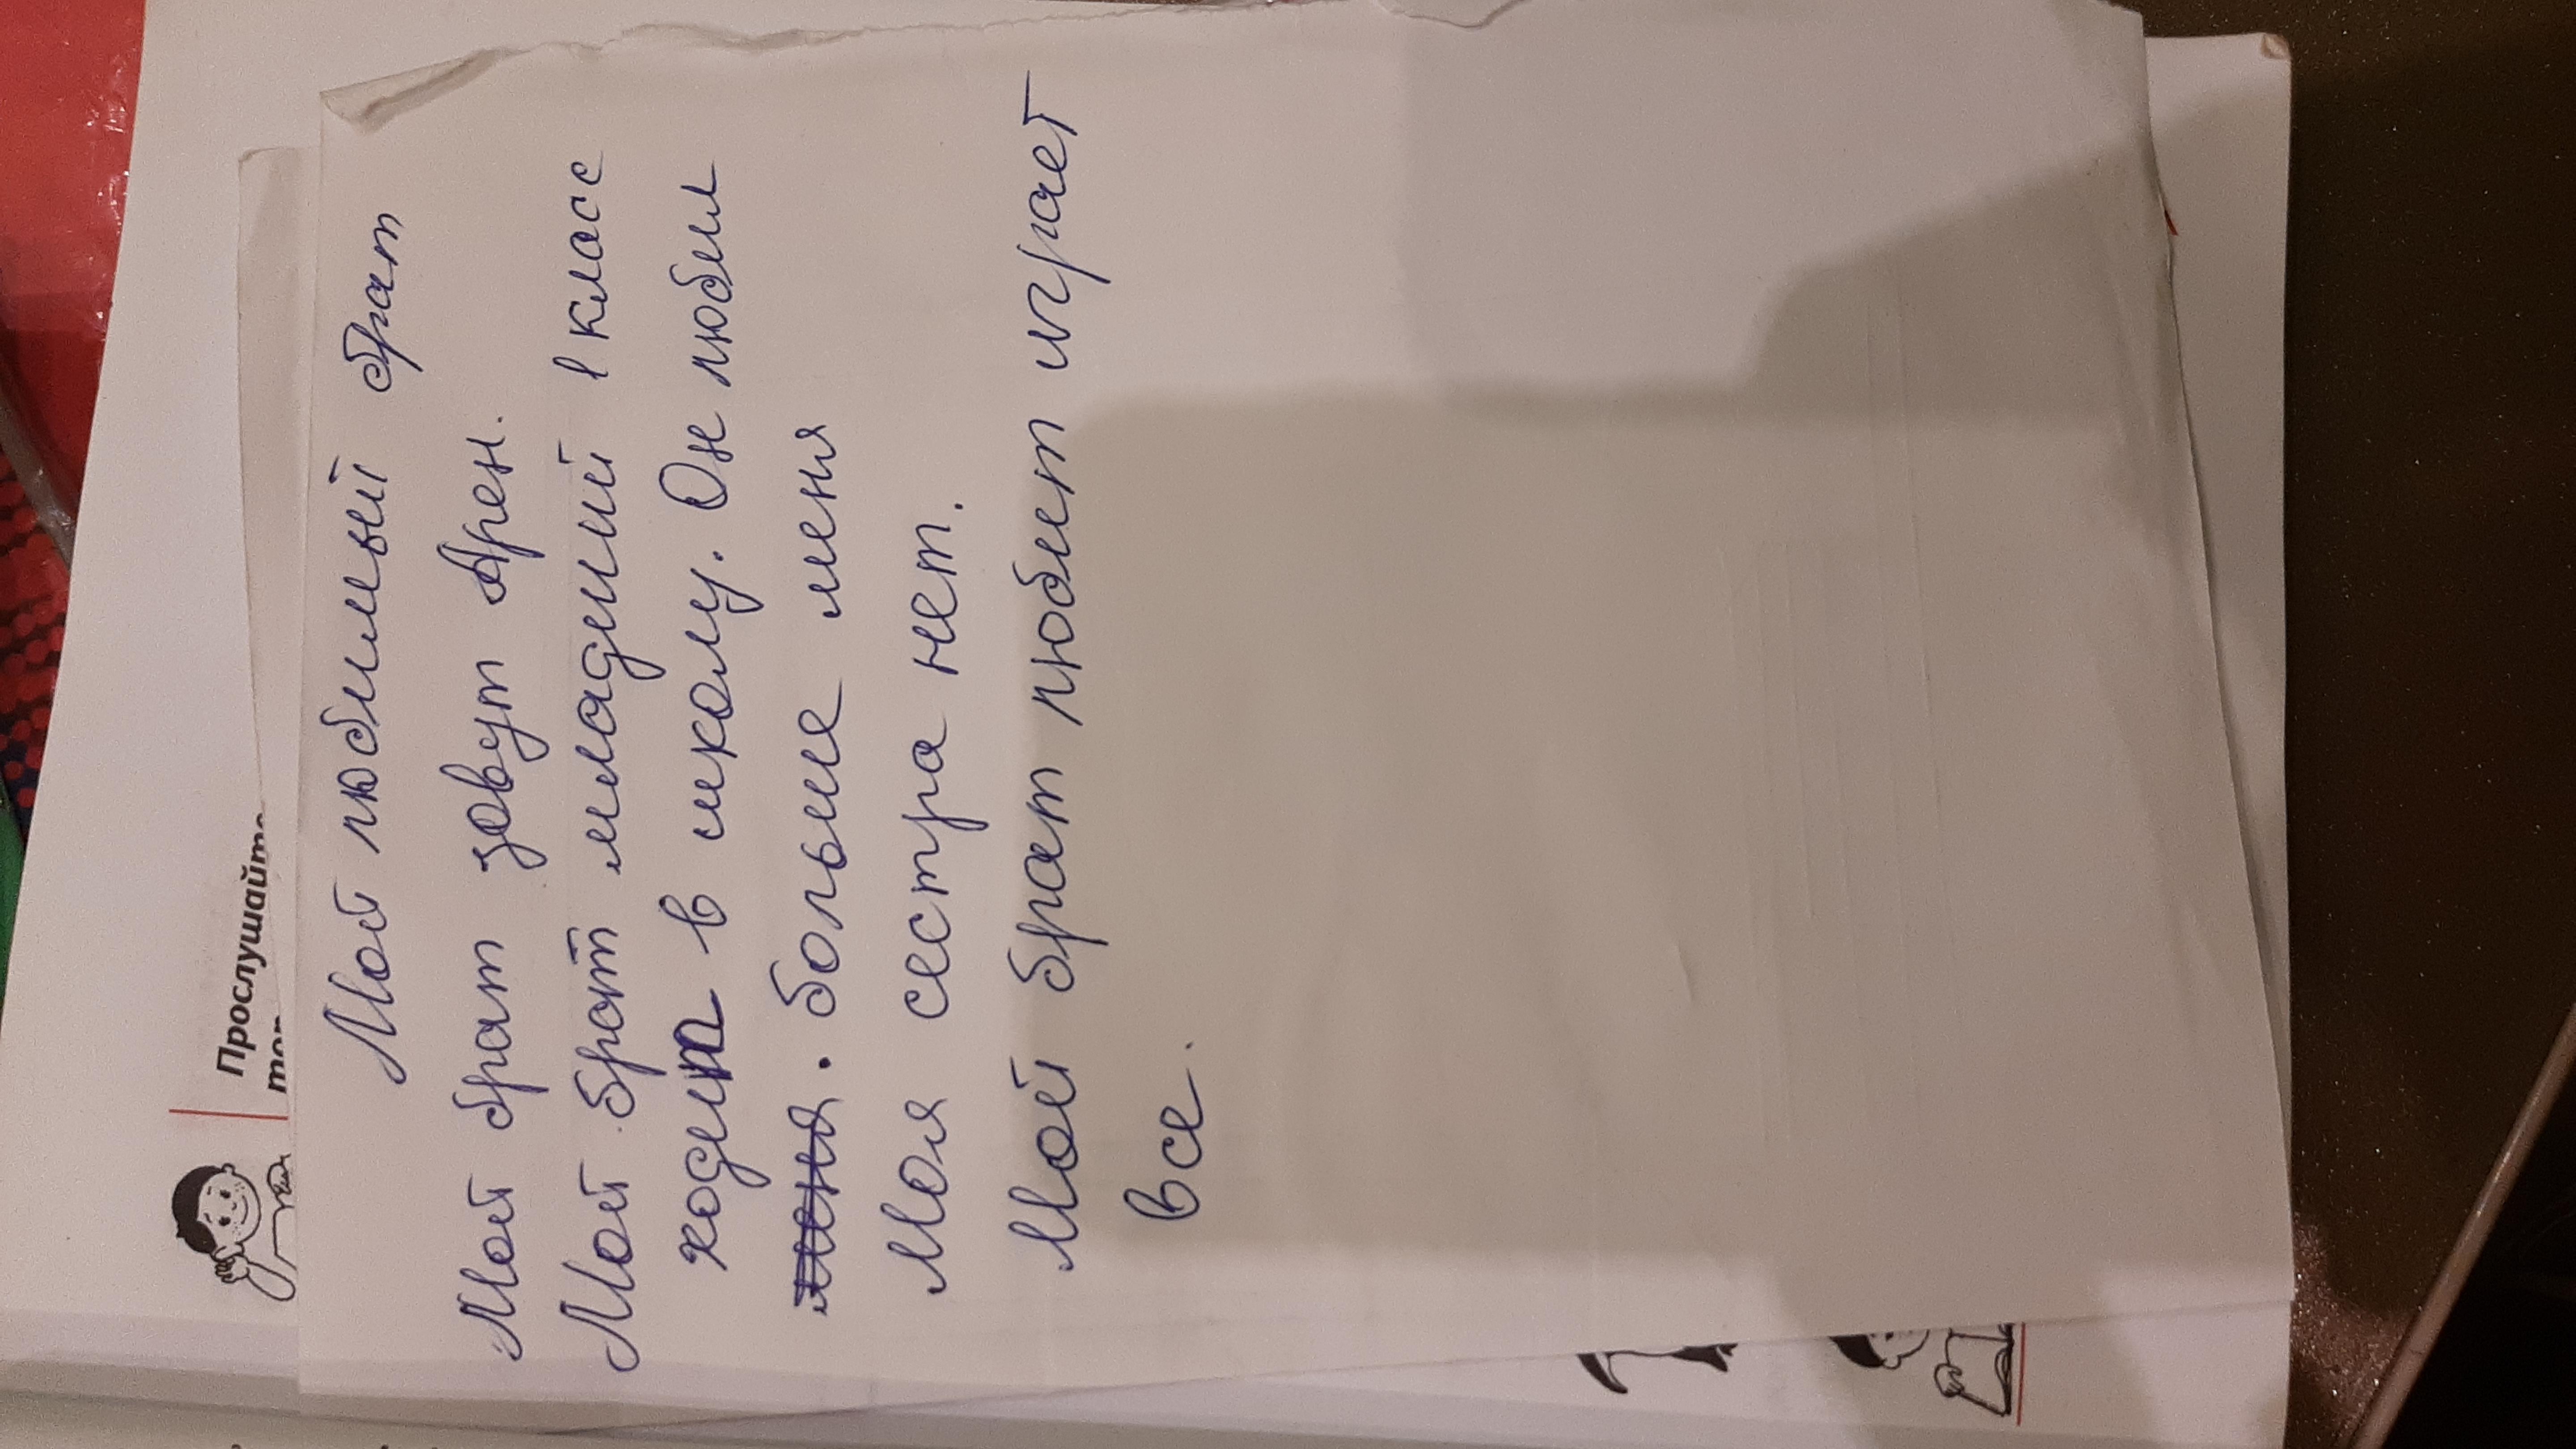 Прослушайте
Мой любимый брат
Мой брат зовут Арен.
Мой брат младший 1 класс
ходит в школу. Он любил
меня. больше меня
Моя сестра нет.
Мой брат любит играет
все.